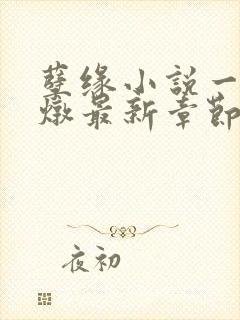 孽缘小説一
燉最新章節
夜初